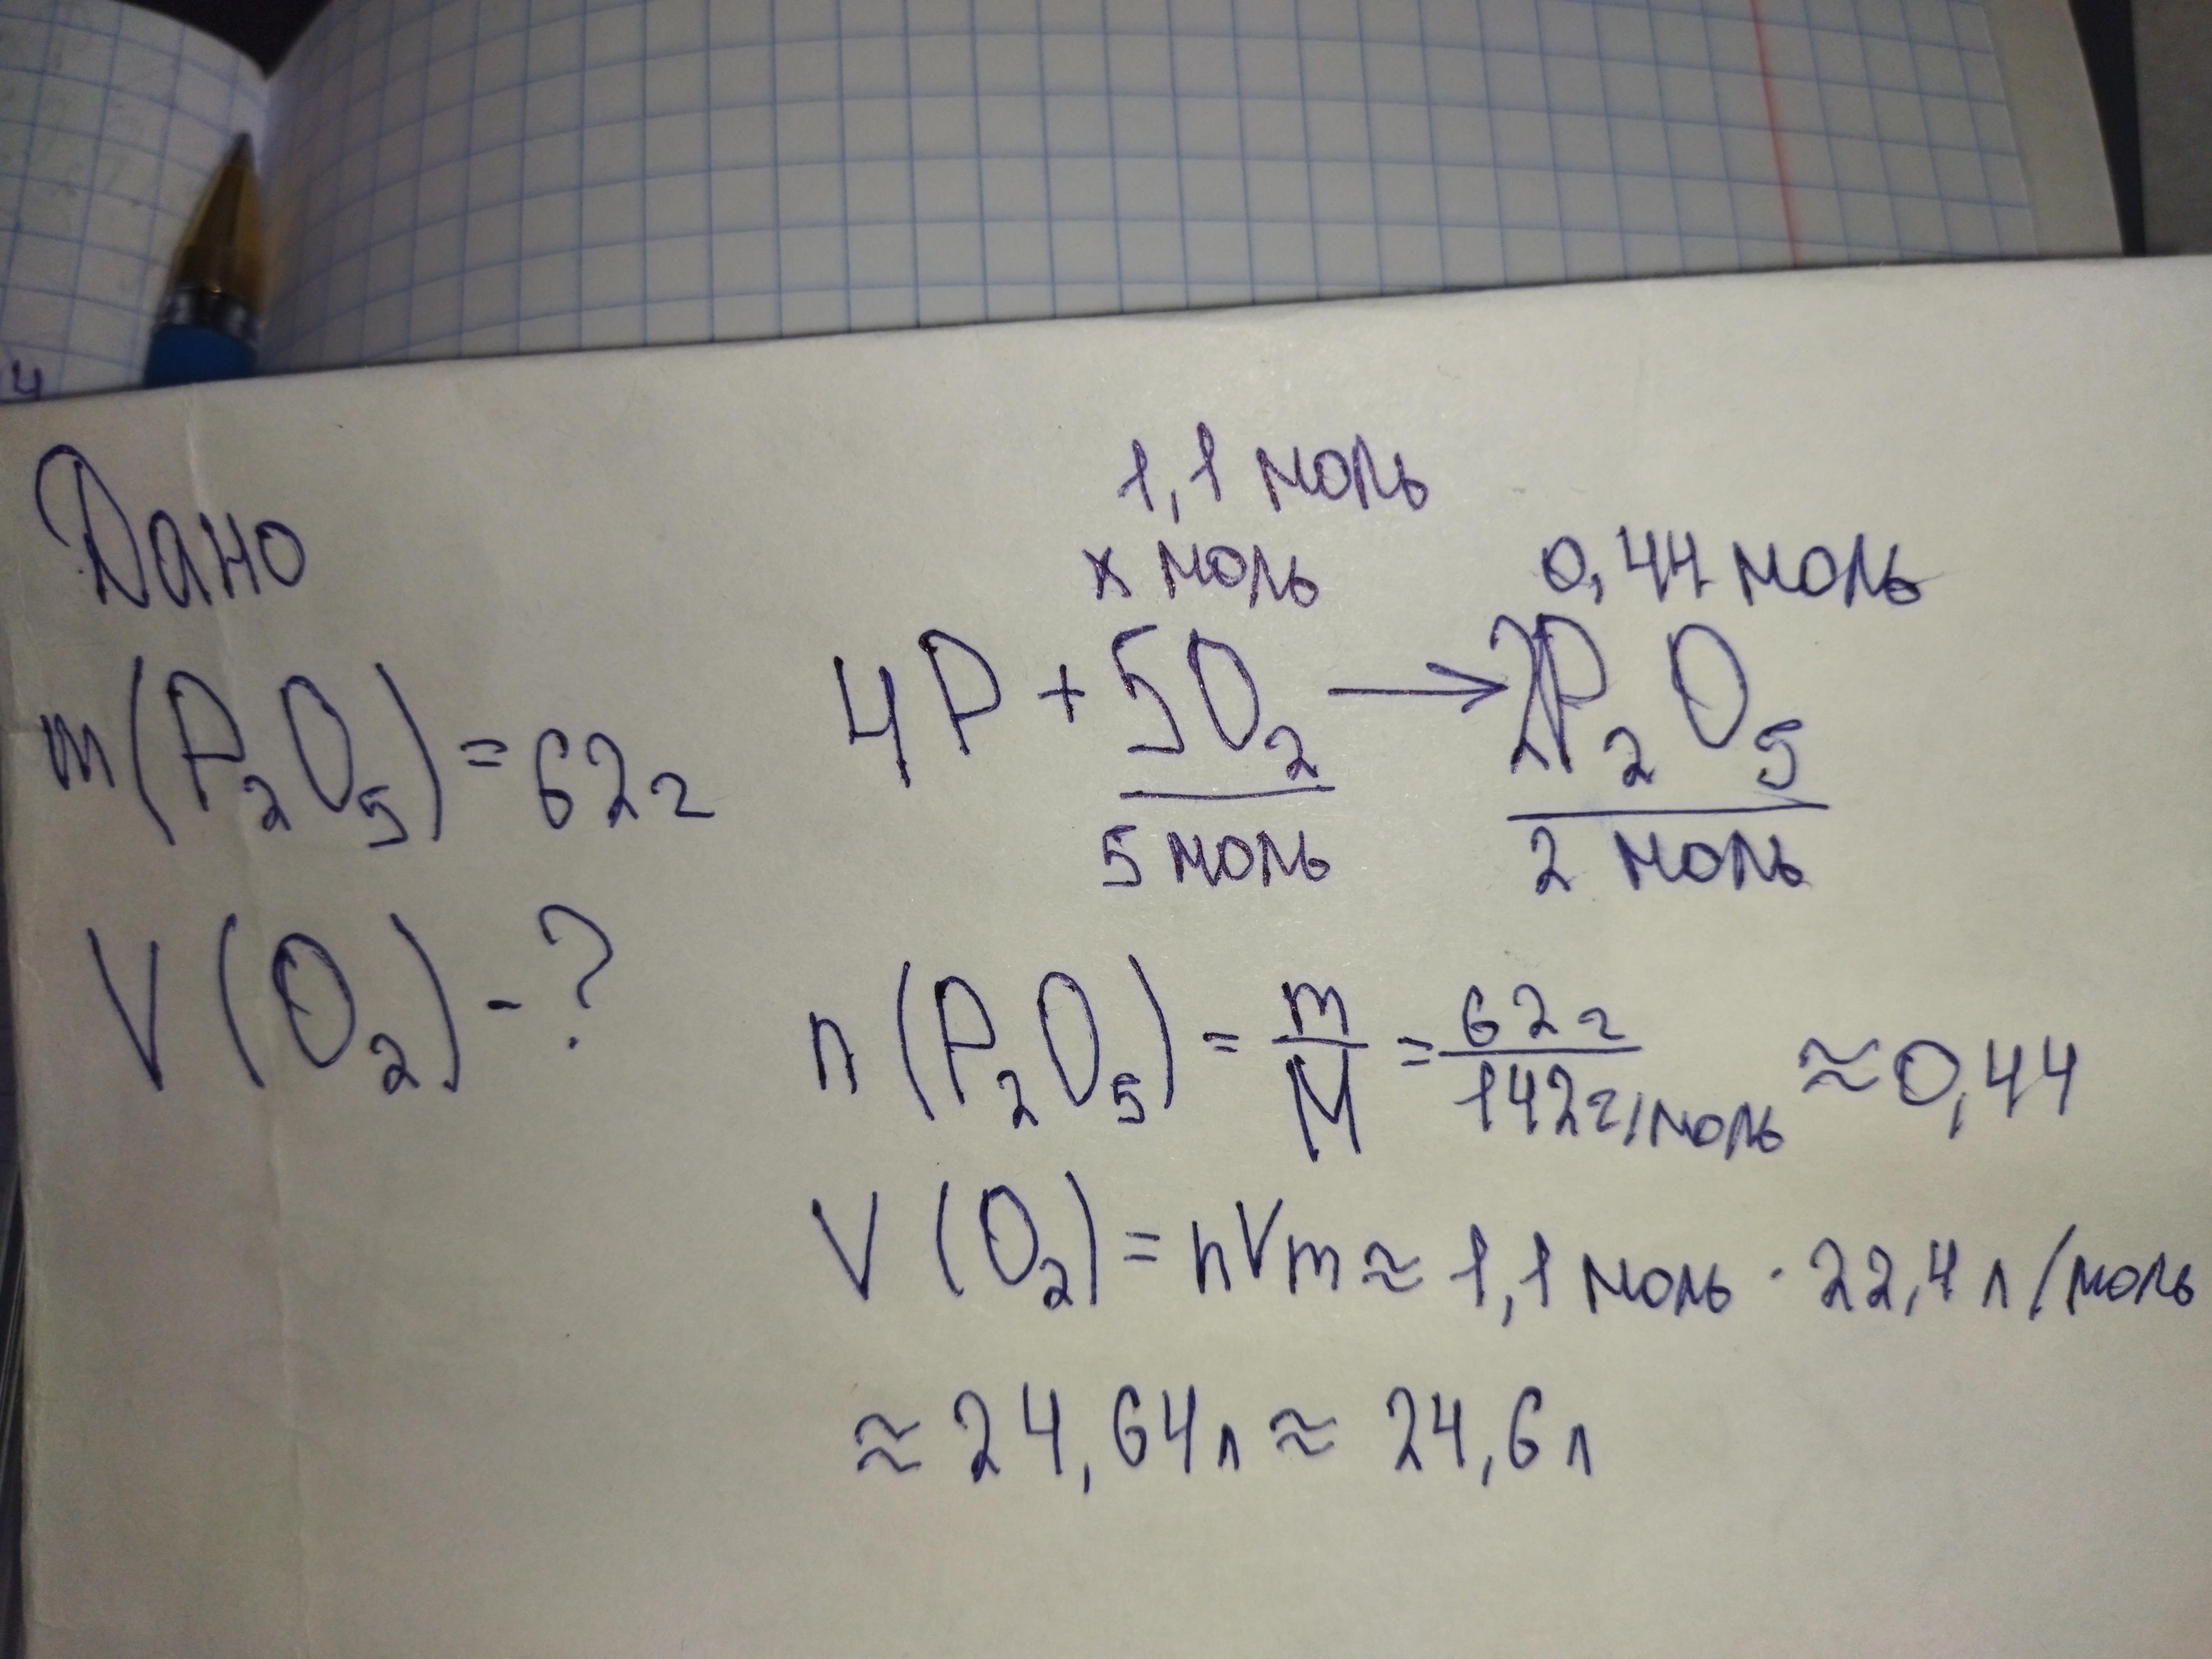 ч
Дано
m(P₂O₅) = 62г
V(O₂) - ?
1,1 моль
x моль 0,44 моль
4P + 5O₂ → 2P₂O₅
5 моль 2 моль
n(P₂O₅) = m/M = 62г/142г/моль ≈ 0,44
V(O₂) = nVm ≈ 1,1 моль · 22,4 л/моль
≈ 24,64л ≈ 24,6л